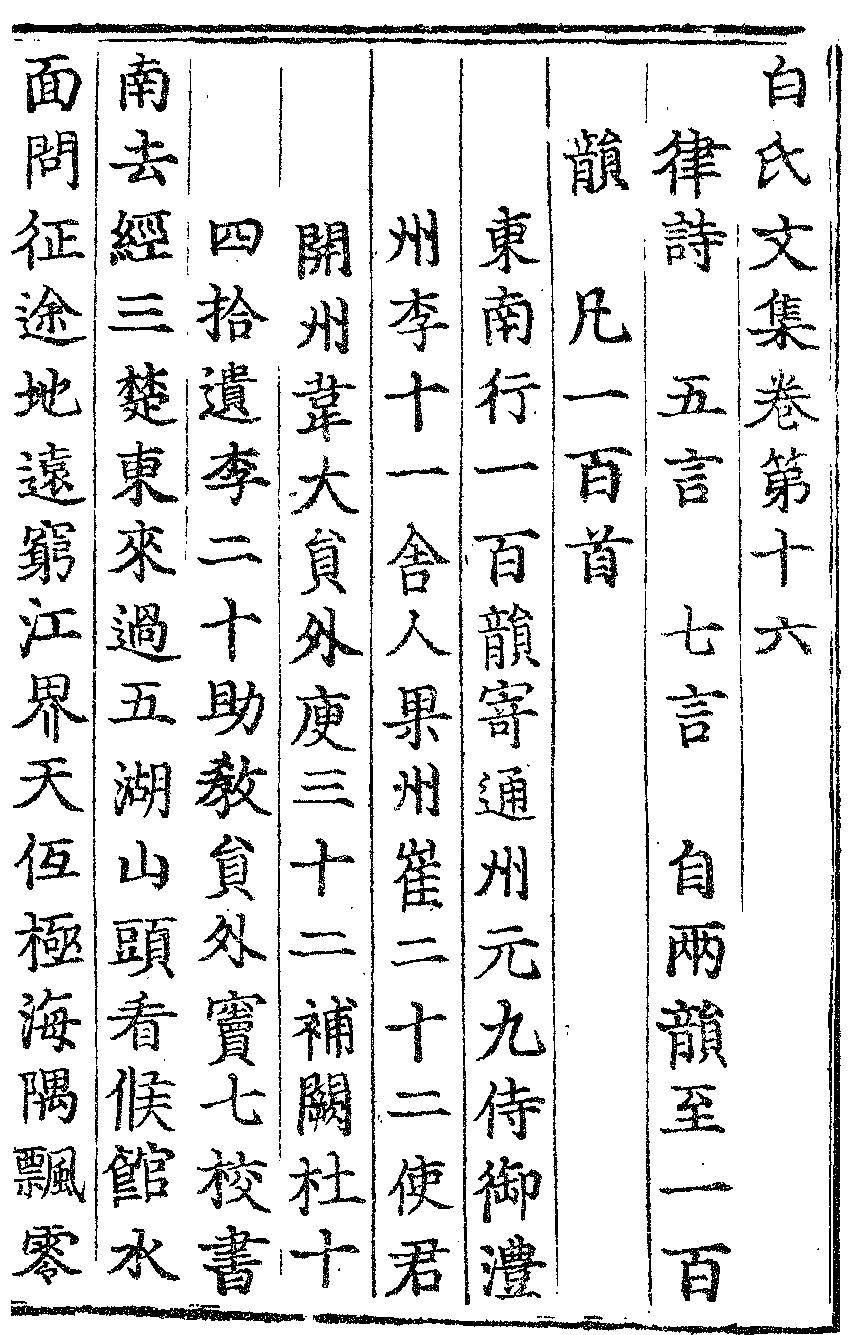 白氏文集卷第十六
律詩　五言　七言　自兩韻至一百
韻　凡一百首
東南行一百韻寄通州元九侍御澧
州李十一舍人果州崔二十二使君
開州韋大貟外庾三十二補闕杜十
四拾遺李二十助教貟外竇七校書
南去經三楚東來過五湖山頭看候館水
面問征途地遠窮江界天伍極海隅飄零